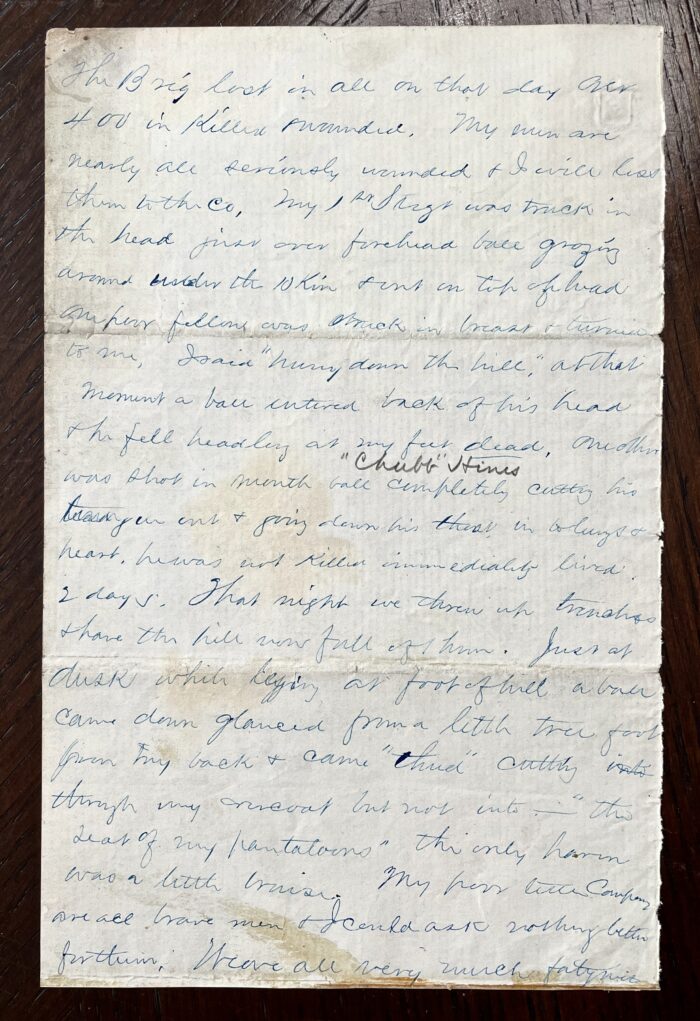 The Brig lost in all on that day over
400 in Killed & wounded. My men are
nearly all seriously wounded & I will lose
them to the Co. My 1st Sergt was struck in
the head just over forehead ball grazing
around under the skin & out on top of head
One poor fellow was struck in breast & turned
to me, I said "hurry down the hill," at that
moment a ball entered back of his head
& he fell headlong at my feet dead. One other
"Chubb" Hines
was shot in mouth ball completely cutting his
out & going down his throat in to lungs &
heart, he was not killed immediately lived
2 days. That night we threw up trenches
& have the hill now full of them. Just at
dusk while laying at foot of hill a ball
came down glanced from a little tree foot
from my back & came "thud" cutting into
through my overcoat but not into — "the
seat of my pantaloons" the only harm
was a little bruise. My poor little Company
are all brave men & I could ask nothing better
for them. We are all very much